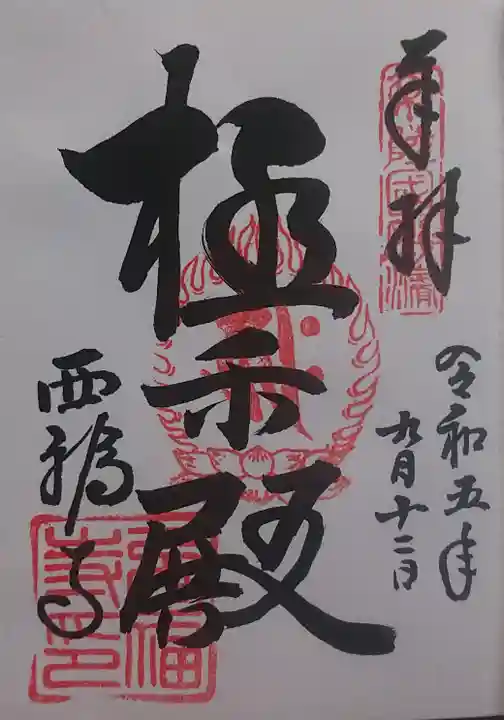 奉拝
令和五年
九月十二日
極楽殿
西福寺